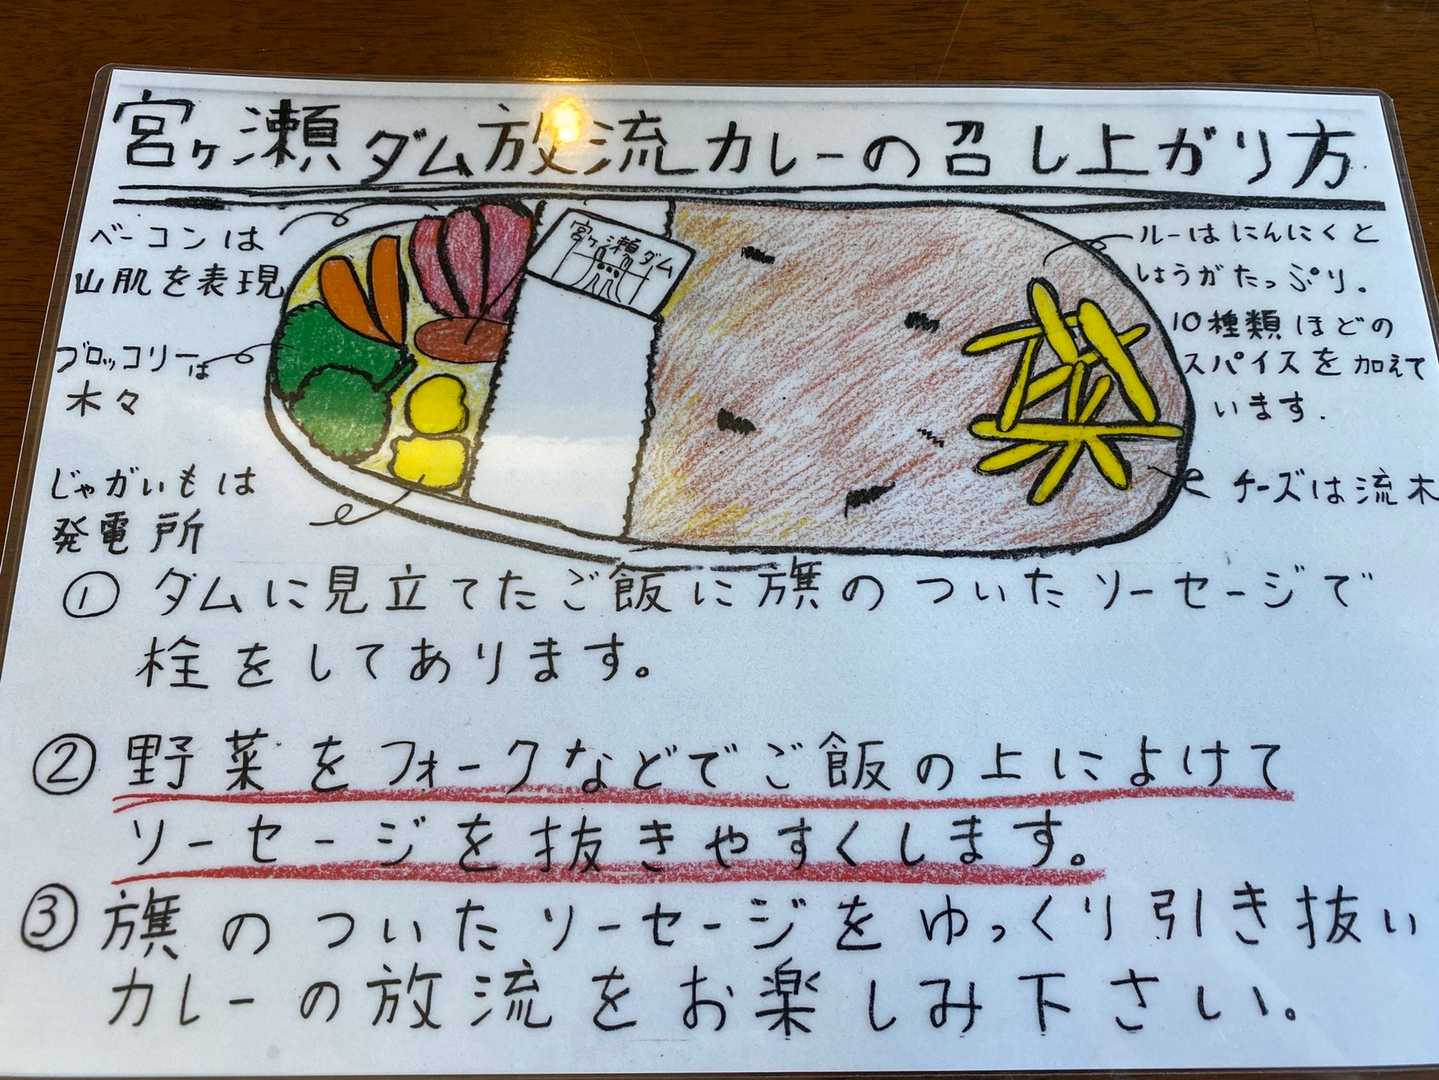 宮ヶ瀬ダム放流カレーの召し上がり方
ベーコンは
山肌を表現
ブロッコリーは
木々
じゃがいもは
発電所
宮ヶ瀬ダム
ルーはにんにくと
しょうがたっぷり。
10種類ほどの
スパイスを加えて
います.
チーズは流木
① ダムに見立てたご飯に旗のついたソーセージで
栓をしてあります。
② 野菜をフォークなどでご飯の上によけて
ソーセージを抜きやすくします。
③ 旗のついたソーセージをゆっくり引き抜い
カレーの放流をお楽しみ下さい。